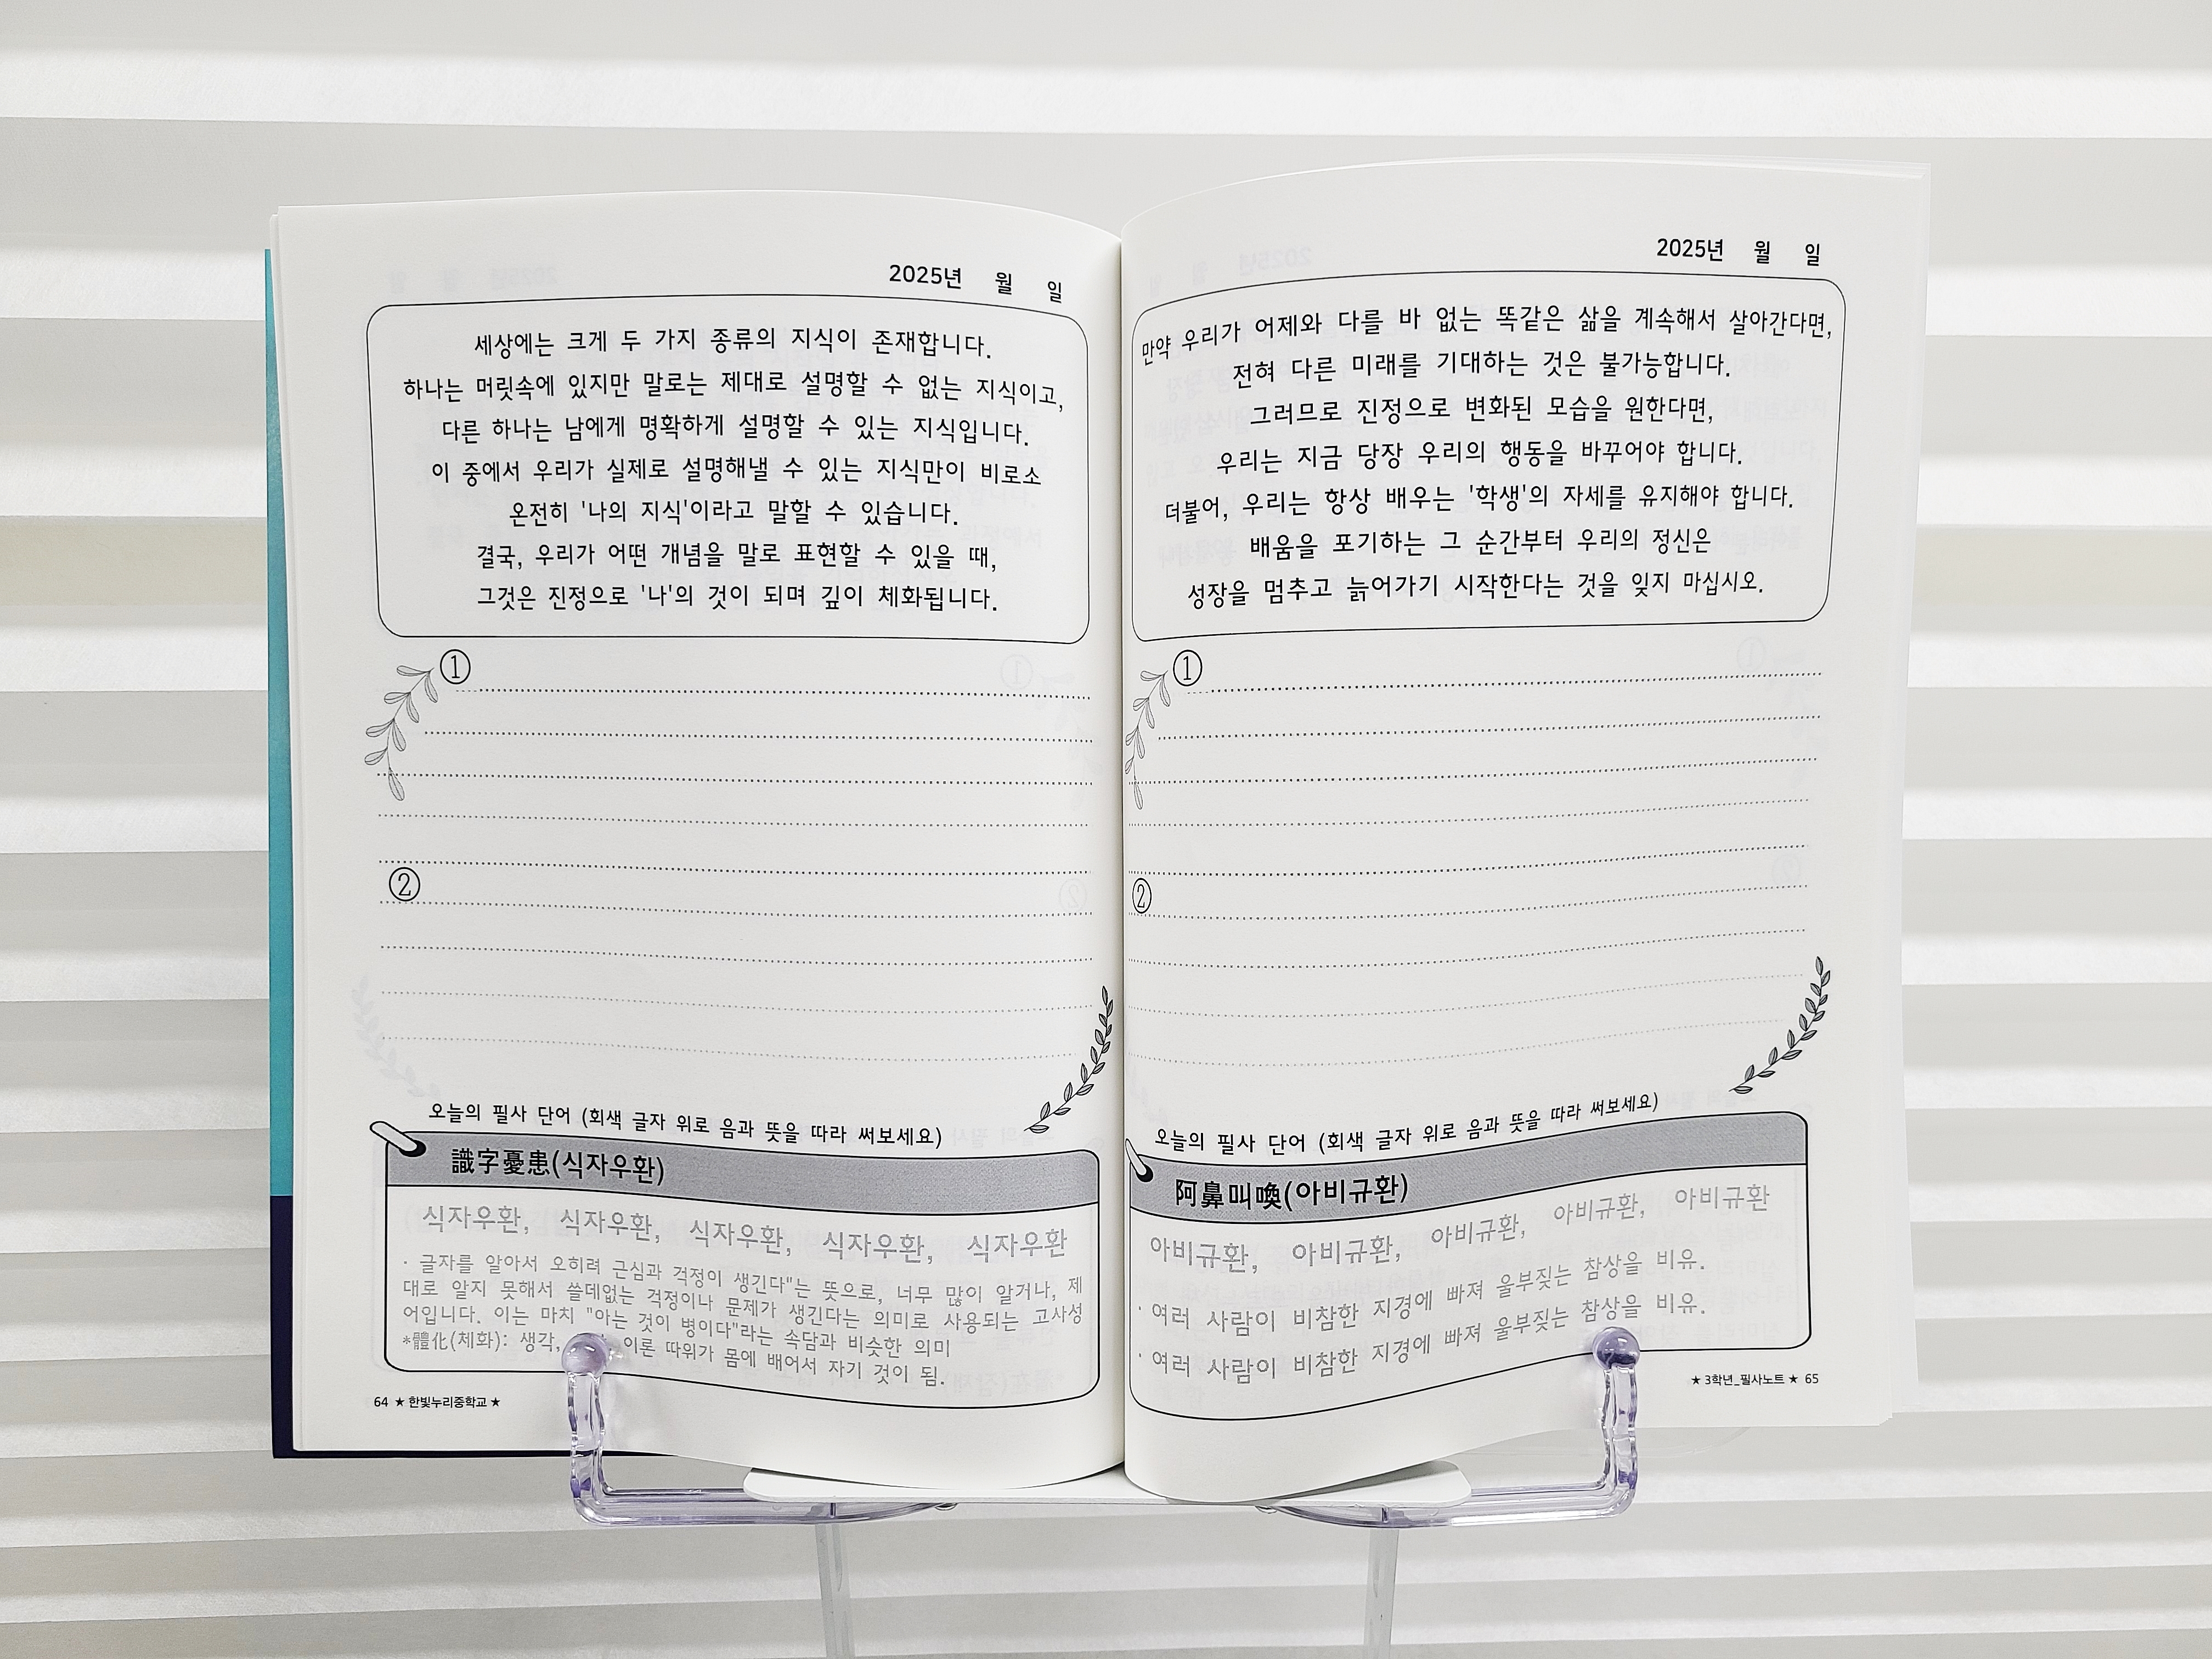 2025년 월 일
세상에는 크게 두 가지 종류의 지식이 존재합니다.
하나는 머릿속에 있지만 말로는 제대로 설명할 수 없는 지식이고,
다른 하나는 남에게 명확하게 설명할 수 있는 지식입니다.
이 중에서 우리가 실제로 설명해낼 수 있는 지식만이 비로소
온전히 '나의 지식'이라고 말할 수 있습니다.
결국, 우리가 어떤 개념을 말로 표현할 수 있을 때,
그것은 진정으로 '나'의 것이 되며 깊이 체화됩니다.
①
②
오늘의 필사 단어 (회색 글자 위로 음과 뜻을 따라 써보세요)
識字憂患(식자우환)
식자우환, 식자우환, 식자우환, 식자우환, 식자우환
· 글자를 알아서 오히려 근심과 걱정이 생긴다"는 뜻으로, 너무 많이 알거나, 제
대로 알지 못해서 쓸데없는 걱정이나 문제가 생긴다는 의미로 사용되는 고사성
어입니다. 이는 마치 "아는 것이 병이다"라는 속담과 비슷한 의미
*體化(체화): 생각, 이론 따위가 몸에 배어서 자기 것이 됨.
64 ★ 한빛누리중학교 ★
2025년 월 일
만약 우리가 어제와 다를 바 없는 똑같은 삶을 계속해서 살아간다면,
전혀 다른 미래를 기대하는 것은 불가능합니다.
그러므로 진정으로 변화된 모습을 원한다면,
우리는 지금 당장 우리의 행동을 바꾸어야 합니다.
더불어, 우리는 항상 배우는 '학생'의 자세를 유지해야 합니다.
배움을 포기하는 그 순간부터 우리의 정신은
성장을 멈추고 늙어가기 시작한다는 것을 잊지 마십시오.
①
②
오늘의 필사 단어 (회색 글자 위로 음과 뜻을 따라 써보세요)
阿鼻叫喚(아비규환)
아비규환, 아비규환, 아비규환, 아비규환, 아비규환
· 여러 사람이 비참한 지경에 빠져 울부짖는 참상을 비유.
· 여러 사람이 비참한 지경에 빠져 울부짖는 참상을 비유.
★ 3학년_필사노트 ★ 65